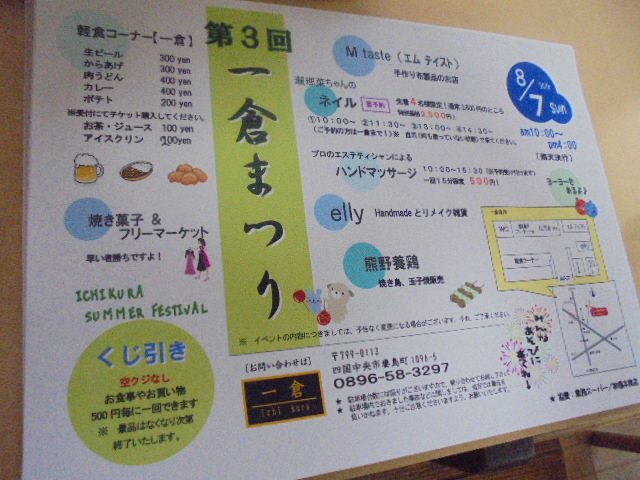 軽食コーナー【一倉】
生ビール 300 yen
からあげ 300 yen
肉うどん 400 yen
カレー 400 yen
ポテト 200 yen
※受付にてチケット購入してください。
お茶・ジュース 100 yen
アイスクリン 100yen
焼き菓子 &
フリーマーケット
早い者勝ちですよ！
ICHIKURA
SUMMER FESTIVAL
くじ引き
空クジなし
お食事やお買い物
500円毎に一回できます
※ 景品はなくなり次第
終了いたします。
第3回
一倉まつり
M taste（エム テイスト）
手作り布製品のお店
ちゃんの
ネイル 要予約
2,500円！
①10:00～ ②11:30～ ③13:00～ ④14:30～
プロのエステティシャンによる
ハンドマッサージ 10:00～15:30
一回15分程度 500円！
elly Handmadeとリメイク雑貨
熊野養鶏
焼き鳥、玉子焼販売
8/7 SUN
am10:00～
pm4:00
ヨーヨーも
あるよ♪
みんな
あそびに
きてね
※ イベントの内容につきましては、予告なく変更になる場合がございます。予め、ご了承ください。
（お問い合わせは）
一倉
ichi kura
〒799-0113
四国中央市妻鳥町1096-5
0896-58-3297